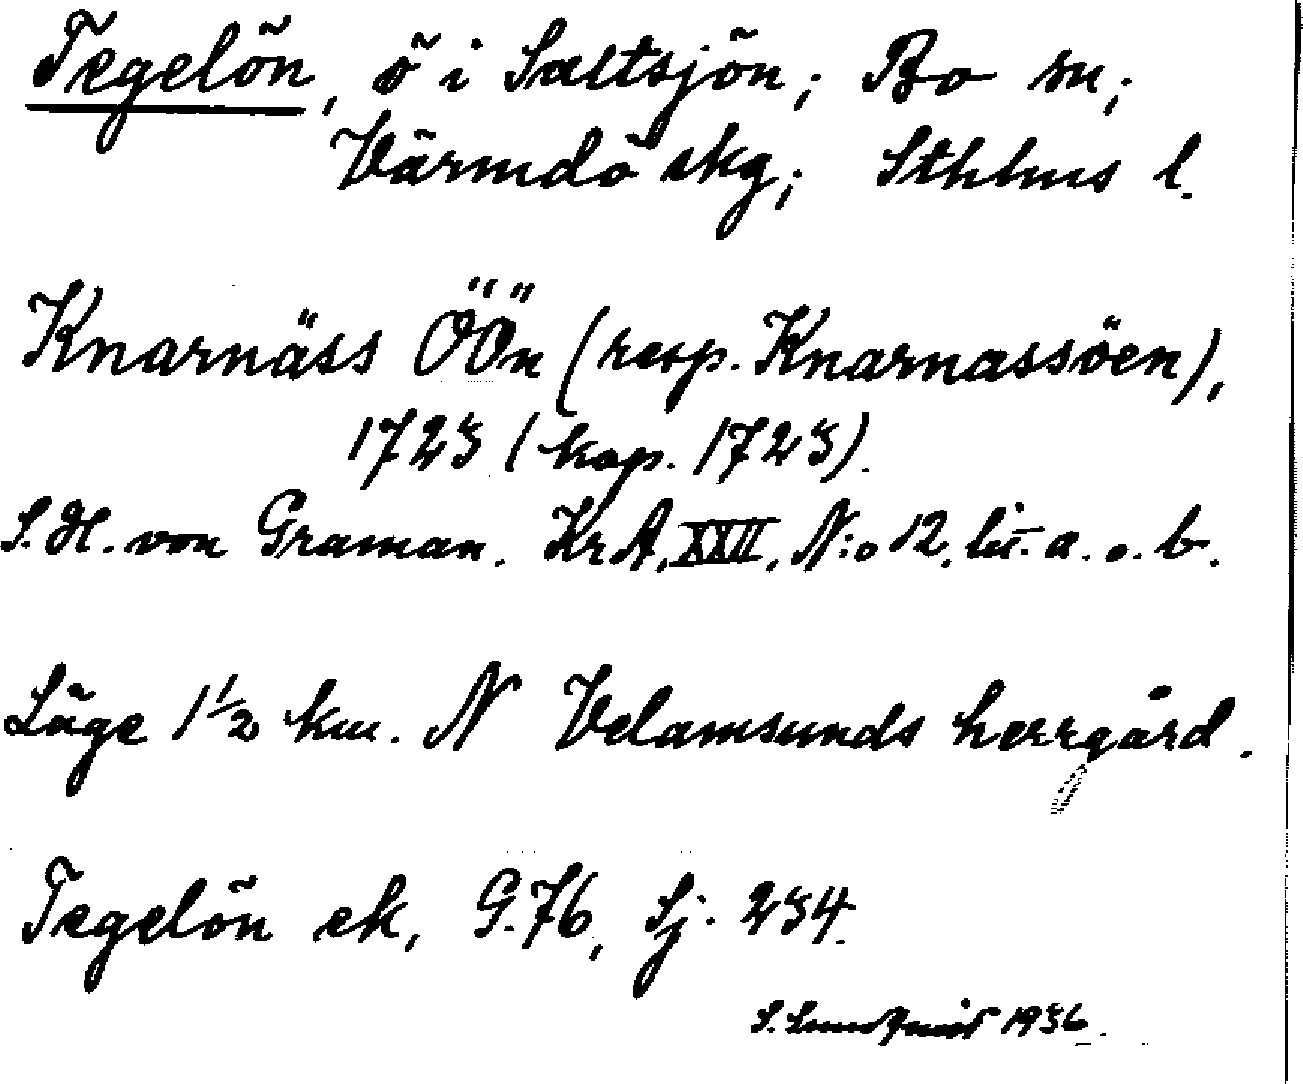 Tegelön, ö i Saltsjön; Bo sn;
Värmdö skg; Sthlms l.
Knarnäss ÖÖn (resp. Knarnassöen),
1723 (kop. 1723).
S. H. von Graman. KrA, XXII, N:o 12, lit. a. o. b.
Läge 1 1/2 km. N Velamsunds herrgård.
Tegelön ek, G. 76, Sj. 234.
S. Lundqvist 1936.